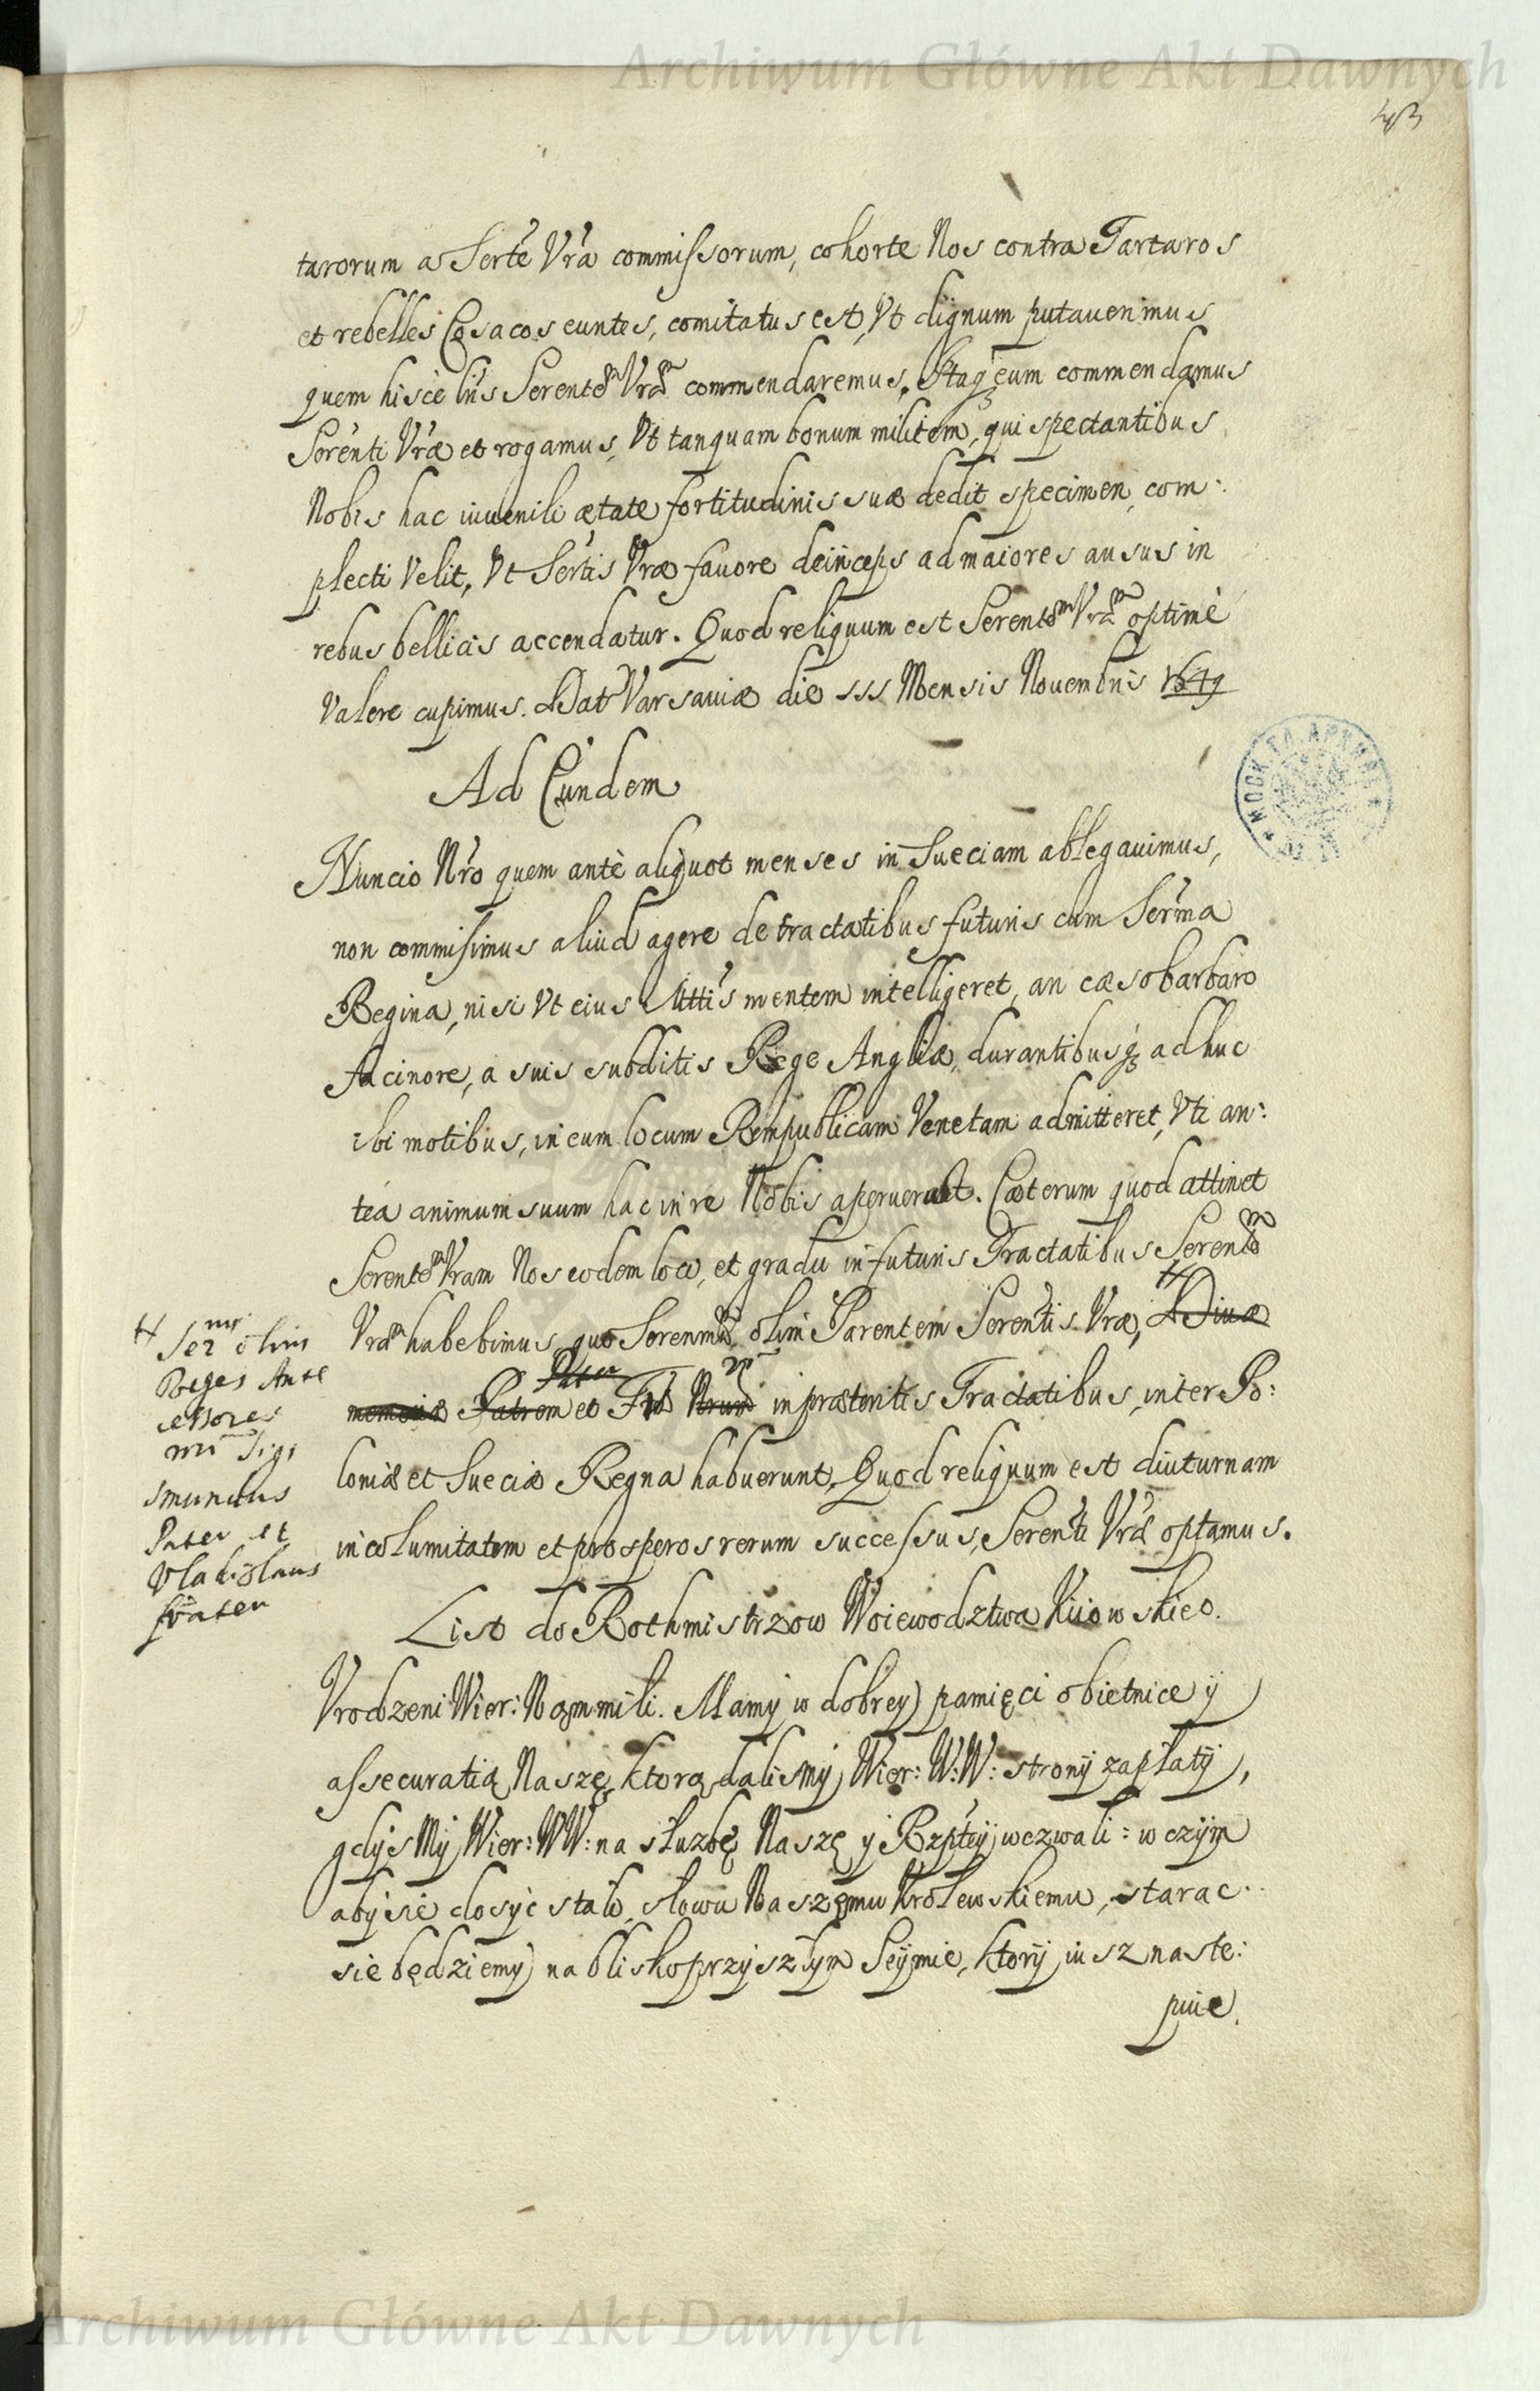 Archiwum Główne Akt Dawnych
43
tarorum a Sertē Vrā commissorum, cohorte Nos contra Tartaros
et rebelles Cosacos euntes, comitatus est, Vt dignum putauerimus
quem hisce lrīs Serentem Vram commendaremus. Itaq eum commendamus
Serēnti Vræ et rogamus, Vt tanquam bonum militem, qui spectantibus
Nobis hac iuuenili ætate fortitudinis suæ dedit specimen, com:
plecti Velit, Vt Sertis Vræ fauore deinceps ad maiores ausus in
rebus bellicis accendatur. Quod reliquum est Serentem Vram optimè
Valere cupimus. Dat Varsauiæ die sss Mensis Nouembris 1649
Ad Eundem
Nuncio Nro quem antè aliquot menses in Sueciam ablegauimus,
non commisimus aliud agere de tractatibus futuris cum Serma
Regina, nisi Vt eius Mttis mentem intelligeret, an cæso barbaro
facinore, a suis subditis Rege Angliæ, durantibusq adhuc
ibi motibus, in eum locum Rempublicam Venetam admitteret, Vti an:
tea animum suum hac in re Nobis aperuerat. Cæterum quod attinet
Serentem Vram Nos eodem loco, et gradu in futuris Tractatibus Serentem
Vram habebimus, quo Serenmi olim Parentem Serentis Vræ, # Diuæ
memoriæ Patrem Pater et Frē Nrum in præteritis Tractatibus, inter Po:
loniæ et Sueciæ Regna habuerunt. Quod reliquum est diuturnam
incolumitatem et prosperos rerum successus, Serenti Vræ optamus.
# Ser mi olim
Reges Ante
cessores
nri Sigi
smundus
Pater et
Vladislaus
frater
List do Rothmistrzow Woiewodztwa Kiiowskieo.
Vrodzeni Wier: Nam mili. Mamy w dobrey pamięci obietnice y
assecuratią Naszę, ktorą dalismy Wier: W:W: strony zapłaty,
gdysmy Wier: WW: na służbę Naszę y Rzptey wezwali: w czym
aby sie dosyc stało słowu Naszemu Krolewskiemu, starac
sie będziemy na blisko przyszłym Seymie, ktory iusz naste:
puie.
Archiwum Główne Akt Dawnych